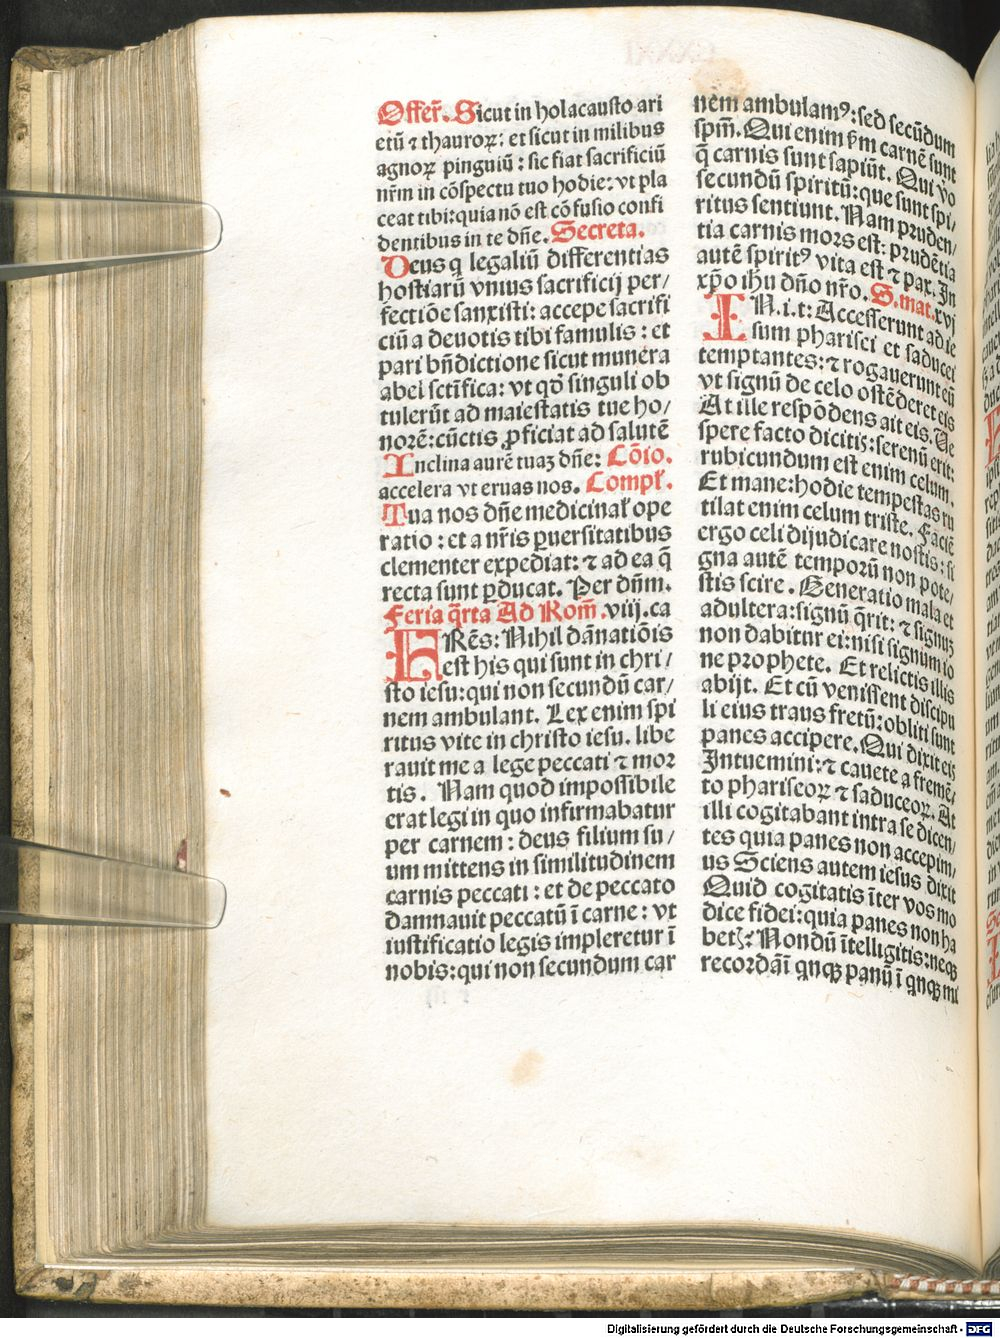 Offer̄. Sicut in holacausto ari
etū ⁊ thauroꝝ: et sicut in milibus
agnoꝝ pinguiū: sic fiat sacrificiū
nr̄m in cōspectu tuo hodie: vt pla
ceat tibi: quia nō est cōfusio confi
dentibus in te dn̄e. Secreta.
Deus q legaliū differentias
hostiarū vnius sacrificij per/
fectiōe sanxisti: accepe sacrifi
ciū a deuotis tibi famulis: et
pari bn̄dictione sicut munera
abel sctīfica: vt qd̄ singuli ob
tulerūt ad maiestatis tue ho/
norē: cūctis ꝓficiat ad salutē
Inclina aurē tuaꝫ dn̄e: Cōio.
accelera vt eruas nos. Compl̄.
Tua nos dn̄e medicinal̄ ope
ratio: et a nr̄is ꝑuersitatibus
clementer expediat: ⁊ ad ea q̄
recta sunt ꝑducat. Per dn̄m.
Feria q̄rta Ad Rom̄. viij. ca
FRēs: Nihil dānatiōis
est his qui sunt in chri/
sto iesu: qui non secundū car/
nem ambulant. Lex enim spi
ritus vite in christo iesu. libe
rauit me a lege peccati ⁊ mor
tis. Nam quod impossibile
erat legi in quo infirmabatur
per carnem: deus filium su/
um mittens in similitudinem
carnis peccati: et de peccato
damnauit peccatū ī carne: vt
iustificatio legis impleretur ī
nobis: qui non secundum car
nem ambulamꝰ: sed secūdum
spm̄. Qui enim ẜm carnē sunt
q̄ carnis sunt sapiūt. Qui vo
secundū spiritū: que sunt spi/
ritus sentiunt. Nam pruden/
tia carnis mors est: prudētia
autē spiritꝰ vita est ⁊ pax. In
xp̄o ihū dn̄o nr̄o. S. mat. xvj
IN. i. t: Accesserunt ad ie
sum pharisei et saducei
temptantes: ⁊ rogauerunt eū
vt signū de celo ostēderet eis
At ille respōdens ait eis. Ve
spere facto dicitis: serenū erit:
rubicundum est enim celum.
Et mane: hodie tempestas ru
tilat enim celum triste. Faciē
ergo celi dijudicare nostis: si
gna autē temporū non pote/
stis scire. Generatio mala et
adultera: signū q̄rit: ⁊ signuꝫ
non dabitur ei: nisi signum io
ne prophete. Et relictis illis
abijt. Et cū venissent discipu
li eius trans fretū: obliti sunt
panes accipere. Qui dixit eis
Intuemini: ⁊ cauete a fremē/
to phariseoꝝ ⁊ saduceoꝝ. At
illi cogitabant intra se dicen/
tes quia panes non accepim/
us Sciens autem iesus dixit
Quid cogitatis īter vos mo
dice fidei: quia panes non ha
betꝭ: Nondū ītelligitis: neqꝫ
recordāī qnqꝫ panū ī qnqꝫ mi
Digitalisierung gefördert durch die Deutsche Forschungsgemeinschaft - DFG